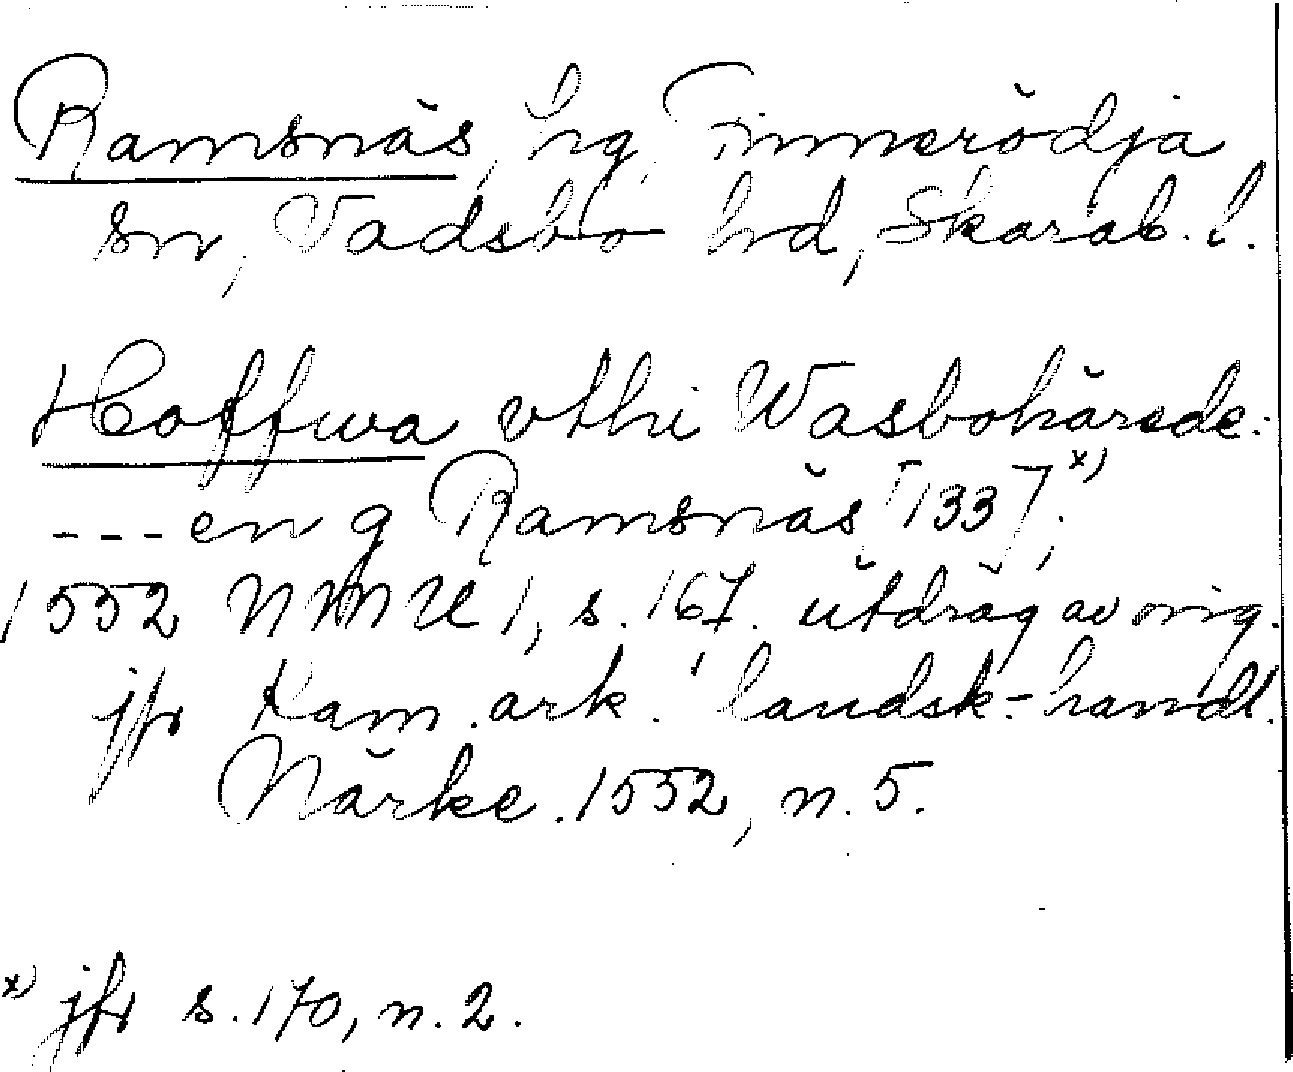 Ramsnäs, hg, Finnerödja
sn, Vadsbo hd, Skarab. l.
Hoffwa vthi Wasbohärede:
--- en g Ramsnäs [133]x);
1552 NMU 1, s. 167. utdrag av orig.
jfr Kam. ark. landsk.-handl.
Närke. 1552, n. 5.
x) jfr s. 170, n. 2.